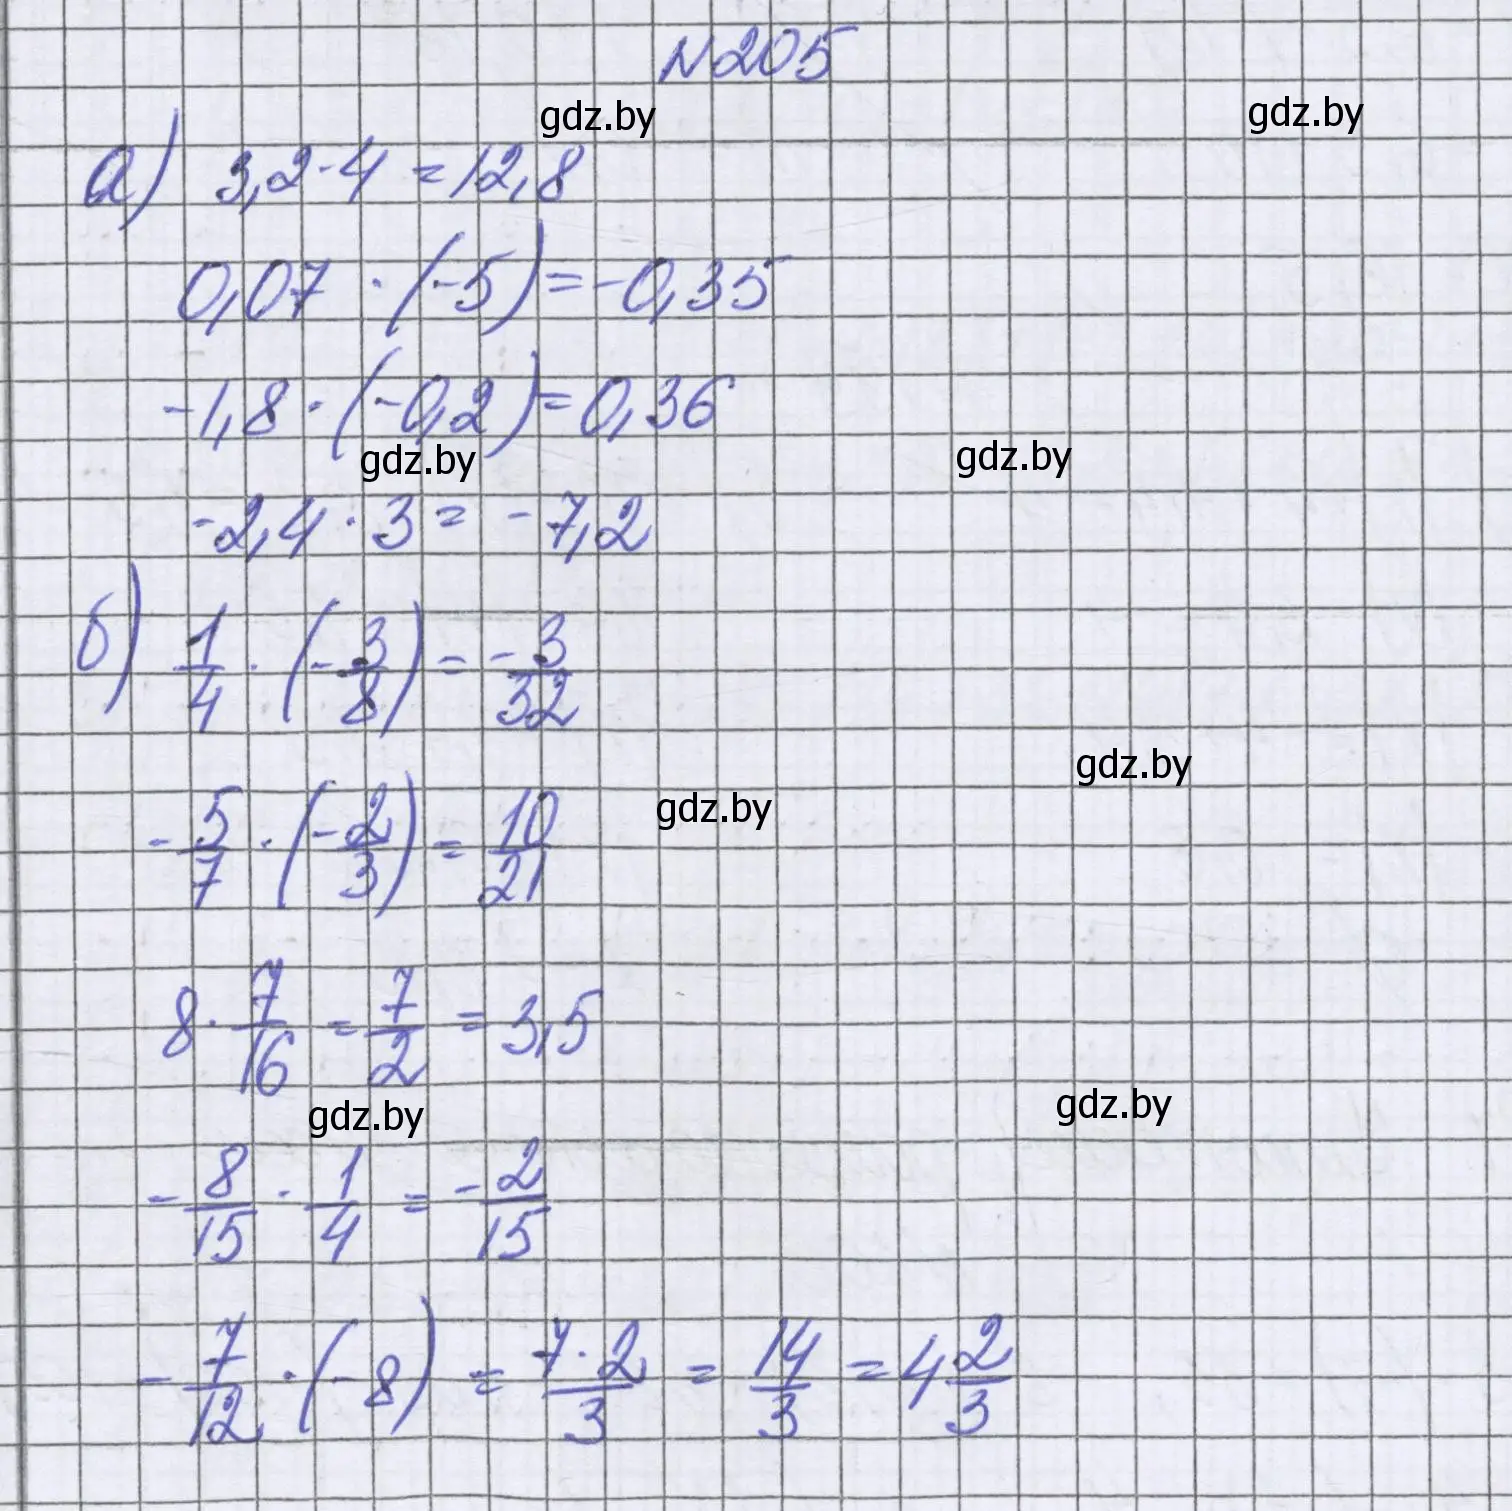 N205
gdz.by
gdz.by
а) 3,2·4 = 12,8
0,07 · (-5) = -0,35
-1,8 · (-0,2) = 0,36
gdz.by
gdz.by
-2,4 · 3 = -7,2
б) 1/4 · (-3/8) = -3/32
gdz.by
gdz.by
-5/7 · (-2/3) = 10/21
8 · 7/16 = 7/2 = 3,5
gdz.by
gdz.by
-8/15 · 1/4 = -2/15
-7/12 · (-8) = 7·2/3 = 14/3 = 4 2/3